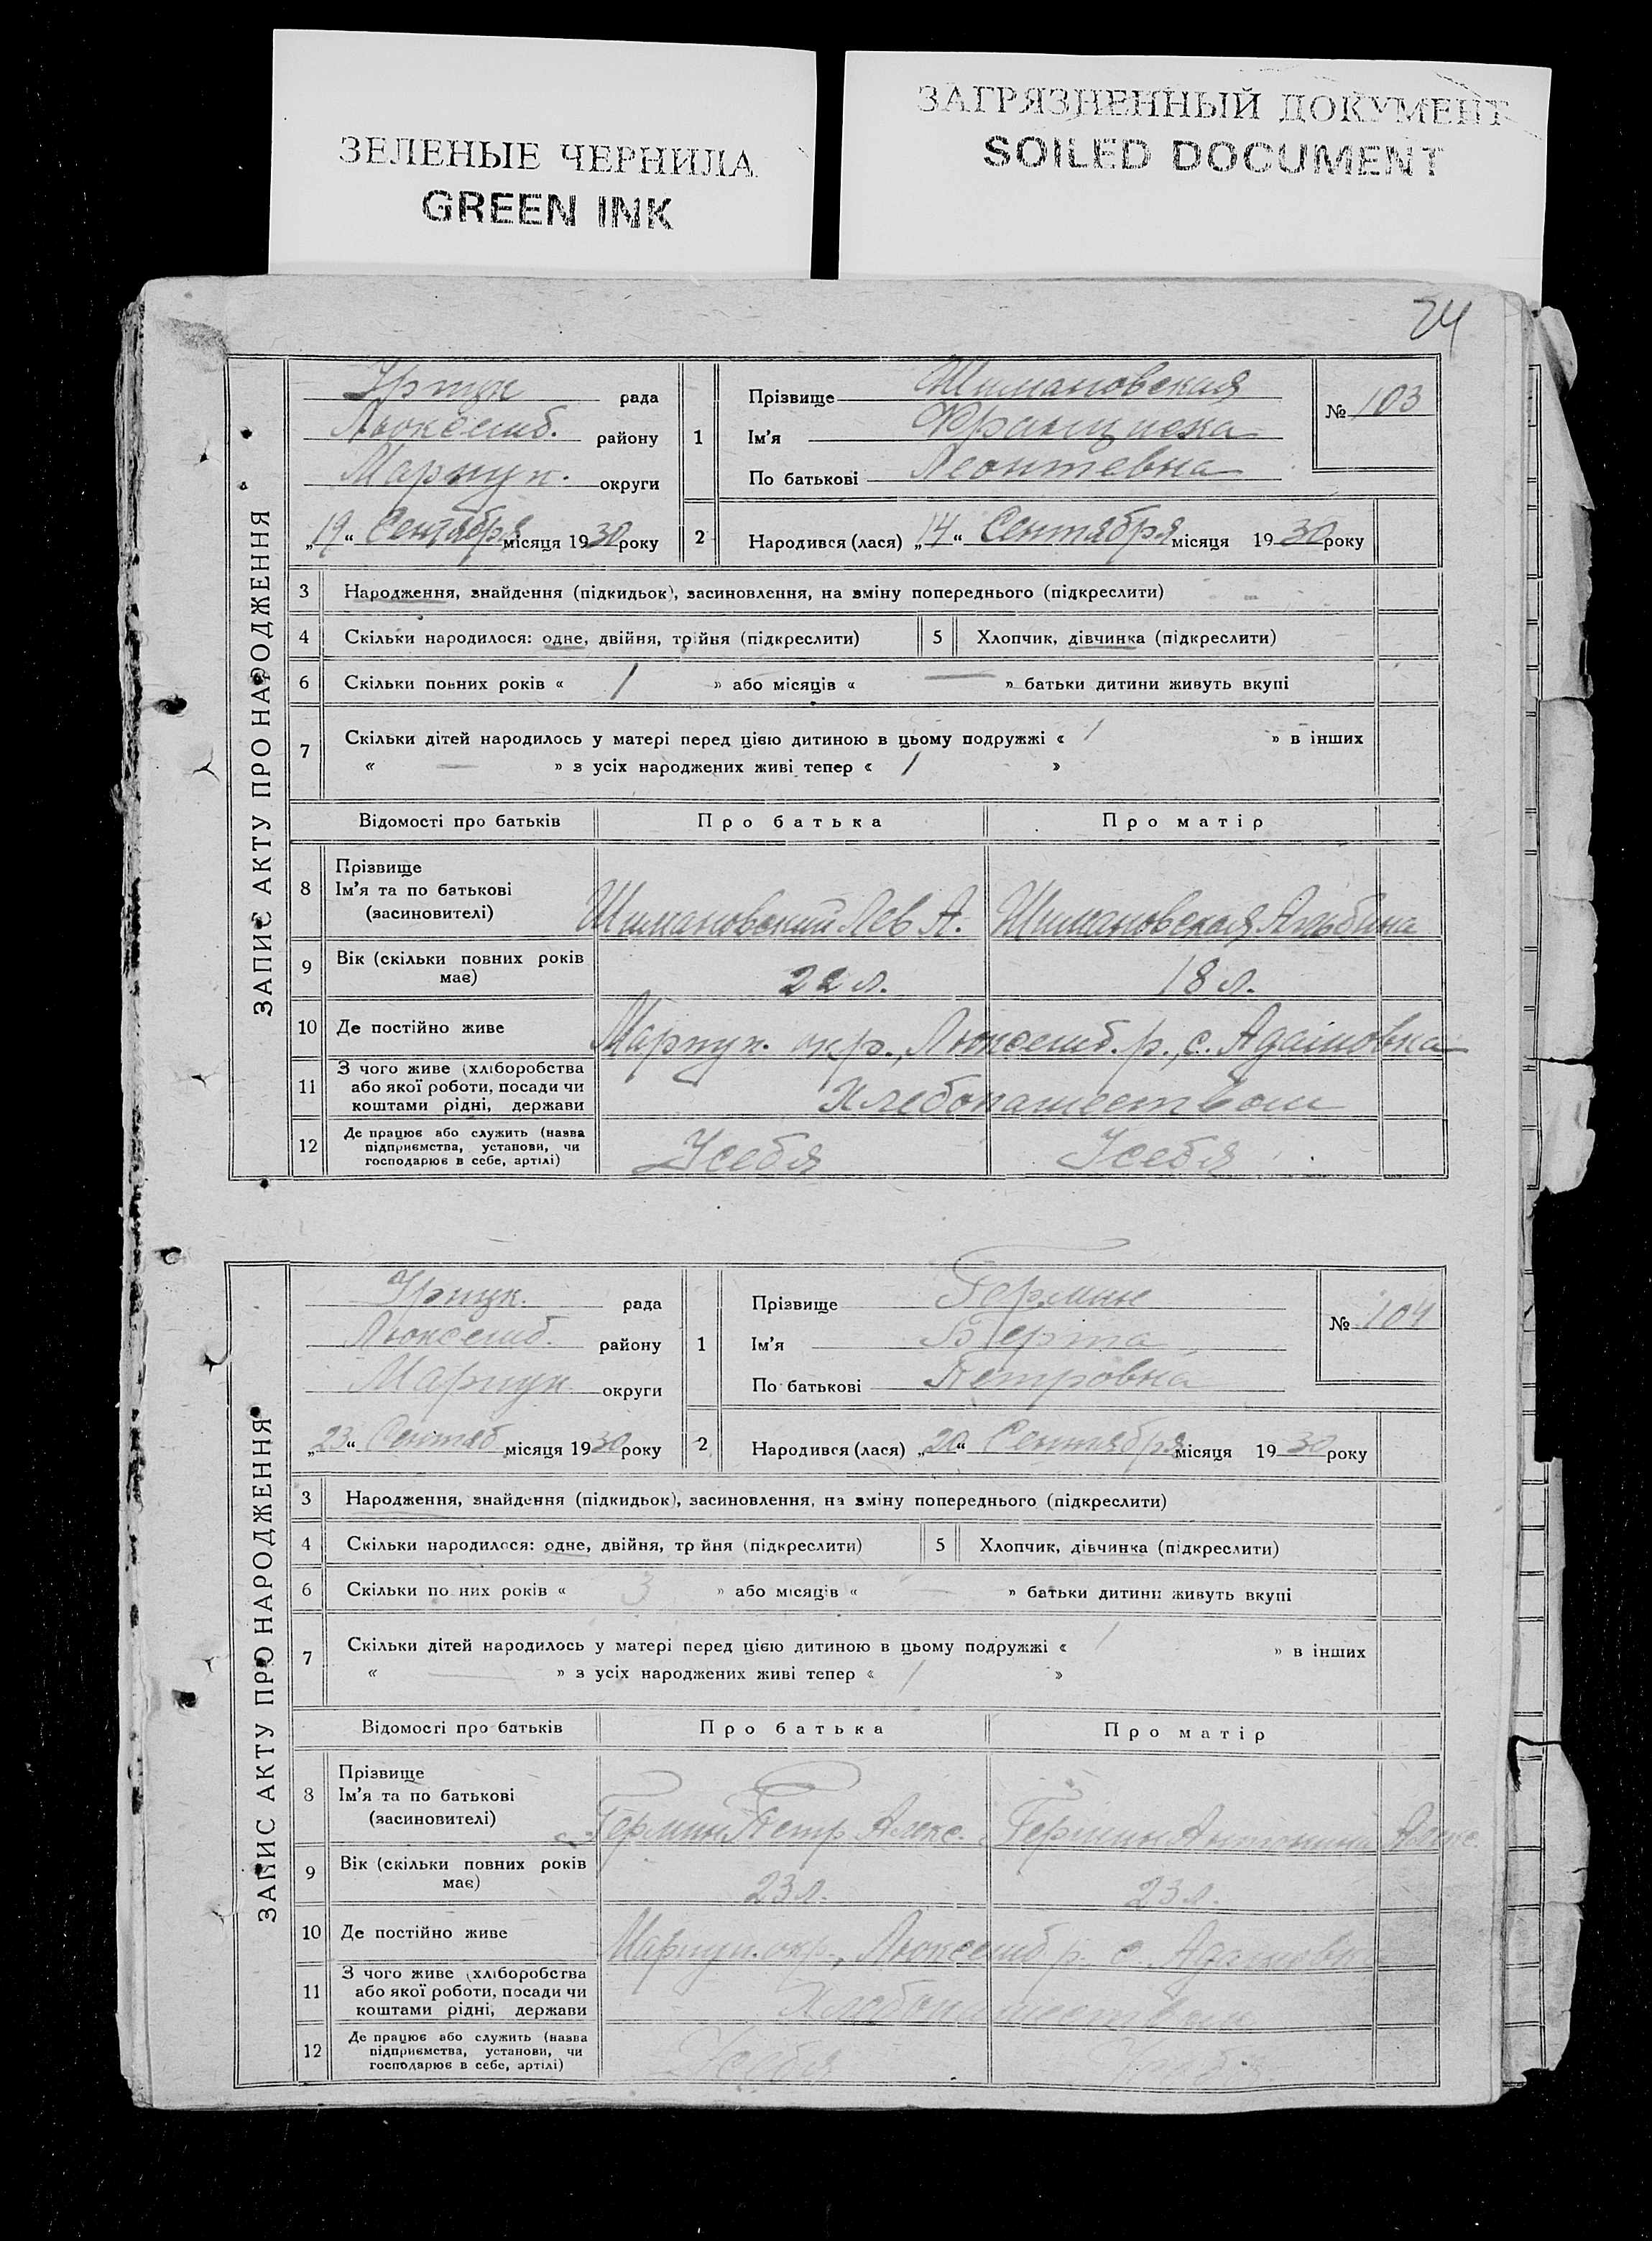 ЗЕЛЕНЫЕ ЧЕРНИЛА
GREEN INK
ЗАГРЯЗНЕННЫЙ ДОКУМЕНТ
SOILED DOCUMENT
24
ЗАПИС АКТУ ПРО НАРОДЖЕННЯ
Урицк рада
Люксемб. району
Мариуп. округи
„19“ Сентября місяця 1930 року
1 Прізвище Шимановская
Ім’я Франциска
По батькові Леонтевна
№ 103
2 Народився (лася) „14“ Сентября місяця 1930 року
3 Народження, знайдення (підкидьок), засиновлення, на зміну попереднього (підкреслити)
4 Скільки народилося: одне, двійня, трійня (підкреслити) 5 Хлопчик, дівчинка (підкреслити)
6 Скільки повних років « 1 » або місяців « — » батьки дитини живуть вкупі
7 Скільки дітей народилось у матері перед цією дитиною в цьому подружжі « 1 » в інших
« — » з усіх народжених живі тепер « 1 »
Відомості про батьків Про батька Про матір
8 Прізвище
Ім’я та по батькові
(засиновителі)
Шимановский Лев А. Шимановская Альбина
9 Вік (скільки повних років
має) 22 л. 18 л.
10 Де постійно живе Мариуп. окр., Люксемб. р., с. Адамовка
11 З чого живе (хліборобства
або якої роботи, посади чи
коштами рідні, держави
Хлебопашеством
12 Де працює або служить (назва
підприємства, установи, чи
господарює в себе, артілі)
У себя У себя
ЗАПИС АКТУ ПРО НАРОДЖЕННЯ
Урицк. рада
Люксемб. району
Мариуп округи
„23“ Сентяб місяця 1930 року
1 Прізвище Термин
Ім’я Берта
По батькові Петровна
№ 104
2 Народився (лася) „20“ Сентября місяця 1930 року
3 Народження, знайдення (підкидьок), засиновлення, на зміну попереднього (підкреслити)
4 Скільки народилося: одне, двійня, трійня (підкреслити) 5 Хлопчик, дівчинка (підкреслити)
6 Скільки повних років « 3 » або місяців « — » батьки дитини живуть вкупі
7 Скільки дітей народилось у матері перед цією дитиною в цьому подружжі « 1 » в інших
« — » з усіх народжених живі тепер « 1 »
Відомості про батьків Про батька Про матір
8 Прізвище
Ім’я та по батькові
(засиновителі)
Термин Петр Алекс. Термин Антонина Алекс.
9 Вік (скільки повних років
має) 23 л. 23 л.
10 Де постійно живе Мариуп. окр., Люксемб. р. с. Адамовк
11 З чого живе (хліборобства
або якої роботи, посади чи
коштами рідні, держави
Хлебопашеством
12 Де працює або служить (назва
підприємства, установи, чи
господарює в себе, артілі)
У себя